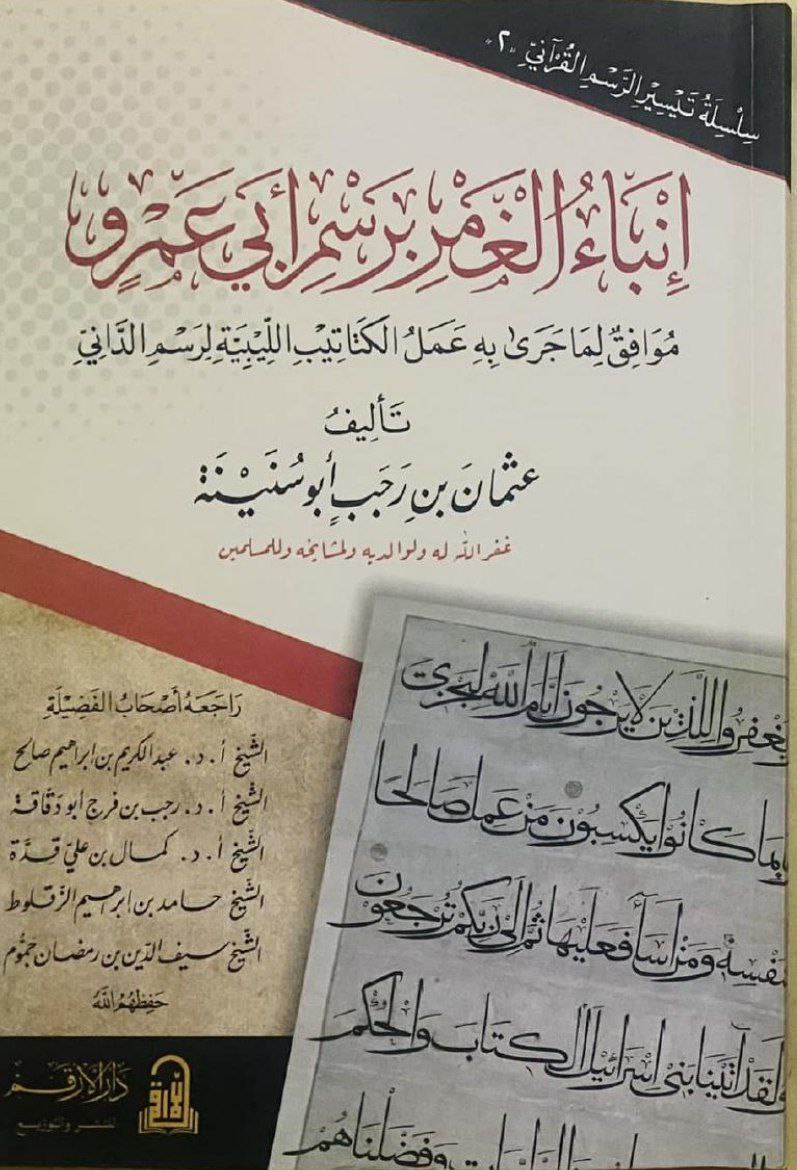 سِلْسِلَةُ تَيْسِيرِ الرَّسْمِ القُرْآنِيِّ «٢»
إِنْبَاءُ الْغَمْرِ بِرَسْمِ أَبِي عَمْرٍو
مُوَافِقٌ لِمَا جَرَىٰ بِهِ عَمَلُ الكَتَاتِيْبِ اللِّيْبِيَّةِ لِرَسْمِ الدَّانِيِّ
تَأْلِيفُ
عثمانَ بنِ رَجَبٍ أبوسُنَيْنَة
غفر الله له ولوالديه ولمشايخه وللمسلمين
رَاجَعَهُ أَصْحَابُ الفَضِيْلَةِ
الشَّيخ أ. د. عبد الكريم بن ابراهيم صالح
الشَّيخ أ. د. رجب بن فرج أبو دقاقة
الشَّيخ أ. د. كمال بن علي قدَّة
الشَّيخ حامد بن ابراهيم الزقلوط
الشَّيخ سيف الدّين بن رمضان حمُّوم
حَفِظَهُمُ اللَّهُ
دار الأرقم
للنشر والتوزيع
يغفروا للذين لا يرجون أيام الله ليجزي
بما كانوا يكسبون من عمل صالحا
فلنفسه ومن أسا فعليها ثم إلى ربكم ترجعون
ولقد آتينا بني اسرائيل الكتاب والحكم
وفضلناهم